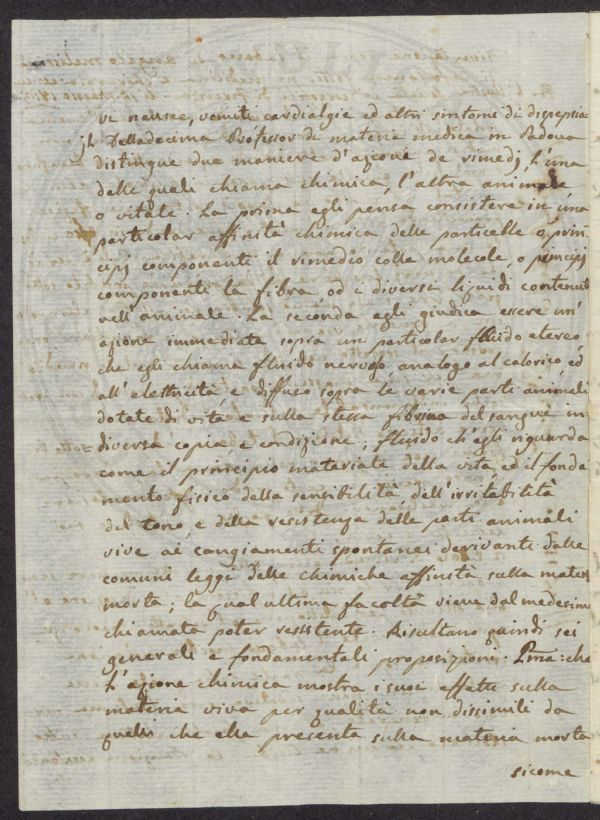 vi nausee, vomiti cardialgie ed altri sintomi di dispepsia
Il Delladecima Professor di materia medica in Padova
distingue due maniere d'azioni de rimedj, L'una
delle quali chiama chimica, l'altra animale,
o vitale. La prima egli pensa consistere in una
particolar affinità chimica delle particelle o prin
cipj componenti il rimedio colla molecole, o principj
componenti la fibra od i diversi liquidi contenuti
nell'animale. La seconda egli giudica essere un'
azione immediata sopra un particolar fluido etereo,
che egli chiama fluido nervoso, analogo al calorico, ed
all'elettricità e diffuso sopra le varie parti animali
dotate di vita e sulla stessa fibrina del sangue in
diversa copia, e condizione; fluido ch'egli riguarda
come il principio materiale della vita, ed il fonda
mento fisico della sensibilità, dell'irritabilità
del tono, e della resistenza delle parti animali
vive ai cangiamenti spontanei derivanti dalle
comuni leggi delle chimiche affinità sulla materia
morta; la qual ultima facoltà viene dal medesimo
chiamata poter resistente. Risultano quindi sei
generali e fondamentali proposizioni. Pma: che
L'azione chimica mostra i suoi effetti sulla
materia viva per qualità non dissimili da
quelli che ella presenta sulla materia morta
sicome